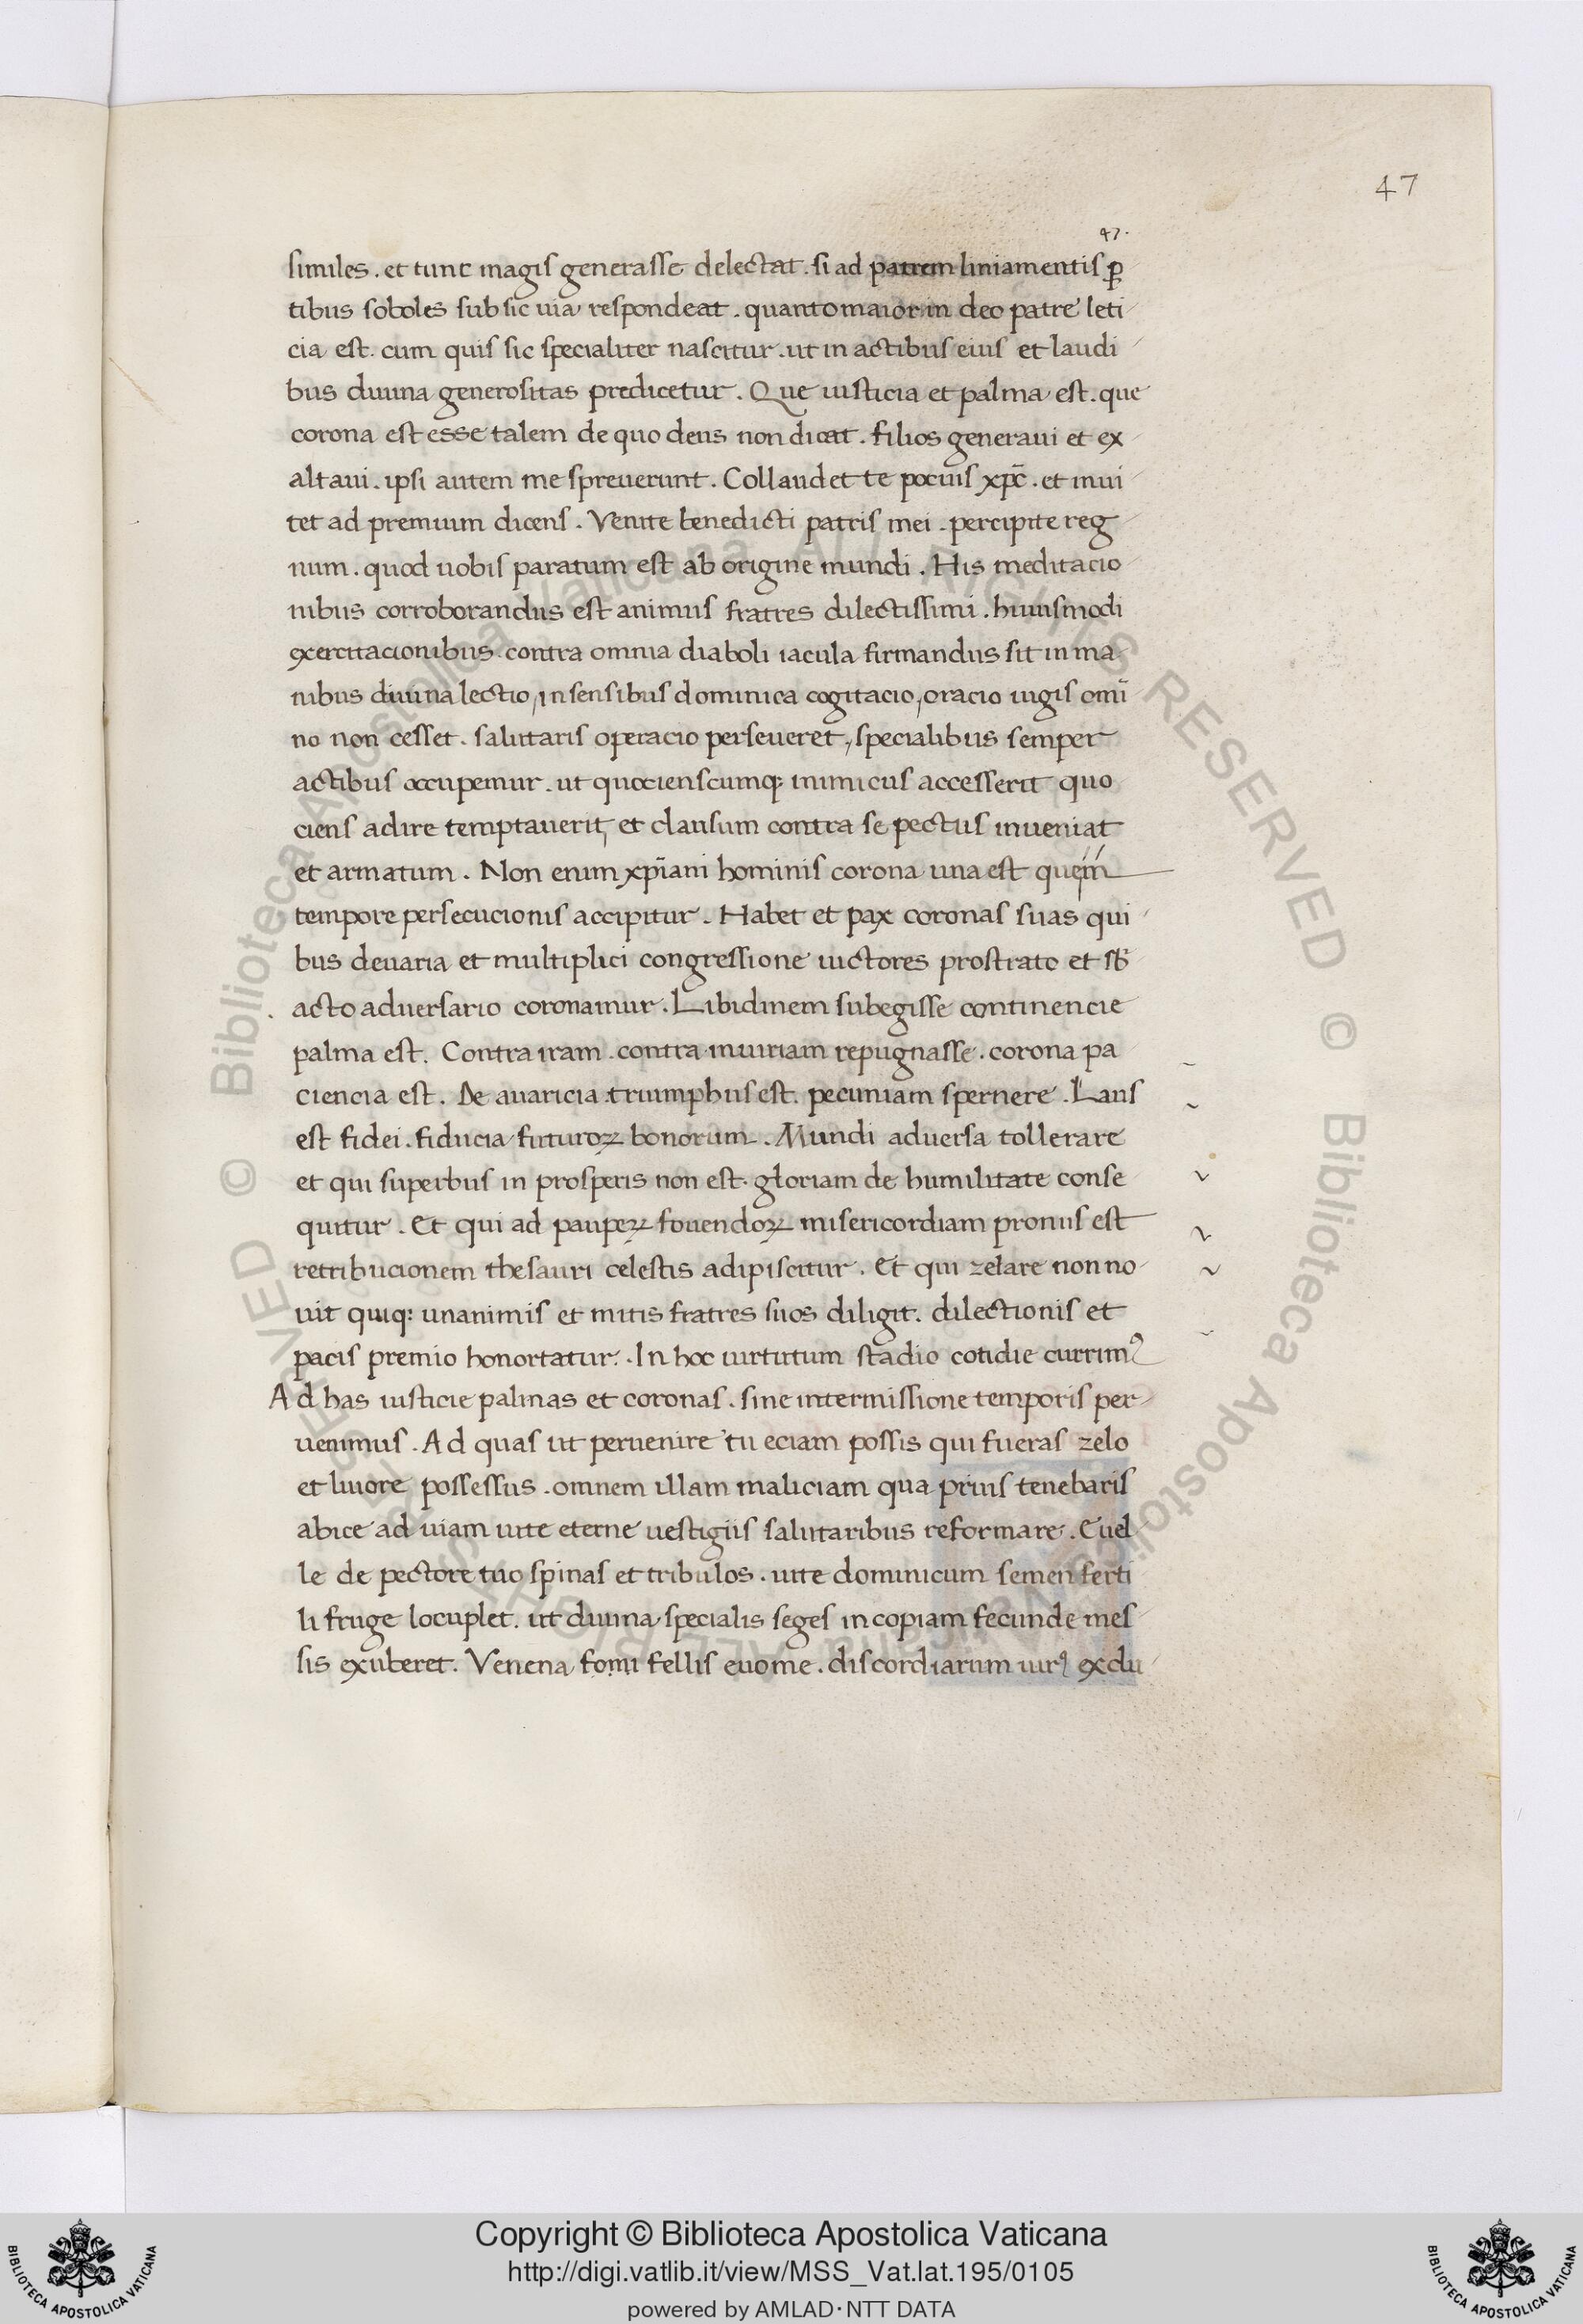 47
47.
similes. et tunc magis generasse delectat. si ad patrem liniamentis p̱
tibus soboles subsicuia respondeat. quanto maior in deo patre leti
cia est. cum quis sic specialiter nascitur. ut in actibus eius et laudi
bus diuina generositas predicetur. Que iusticia et palma est. que
corona est esse talem de quo deus non dicat. filios generaui et ex
altaui. ipsi autem me spreuerunt. Collaudet te pocius xp̄c. et inui
tet ad premium dicens. Venite benedicti patris mei. percipite reg
num. quod uobis paratum est ab origine mundi. His meditacio
nibus corroborandus est animus fratres dilectissimi. huiusmodi
exercitacionibus. contra omnia diaboli iacula firmandus sit in ma
nibus diuina lectio, in sensibus dominica cogitacio, oracio iugis om̄i
no non cesset. salutaris operacio perseueret, specialibus semper
actibus occupemur. ut quocienscumq; inimicus accesserit quo
ciens adire temptauerit, et clausum contra se pectus inueniat
et armatum. Non enim xp̄iani hominis corona una est que
tempore persecucionis accipitur. Habet et pax coronas suas qui
bus deuaria et multiplici congressione uictores prostrato et sb̄
acto aduersario coronamur. Libidinem subegisse continencie
palma est. Contra iram. contra iniuriam repugnasse. corona pa
ciencia est. De auaricia triumphus est. pecuniam spernere. Laus
est fidei. fiducia futuroꝝ bonorum. Mundi aduersa tollerare
et qui superbus in prosperis non est. gloriam de humilitate conse
quitur. Et qui ad paupeꝝ fouendoꝝ misericordiam pronus est
retribucionem thesauri celestis adipiscitur. Et qui zelare non no
uit quiq: unanimis et mitis fratres suos diligit. dilectionis et
pacis premio honortatur. In hoc uirtutum stadio cotidie currimꝰ
Ad has iusticie palmas et coronas. sine intermissione temporis per
uenimus. Ad quas ut peruenire tu eciam possis qui fueras zelo
et liuore possessus. omnem illam maliciam qua prius tenebaris
abice ad uiam uite eterne uestigiis salutaribus reformare. Euel
le de pectore tuo spinas et tribulos. uite dominicum semen ferti
li fruge locuplet. ut diuina specialis seges in copiam fecunde mes
sis exuberet. Venena fomi fellis euome. discordiarum uirꝰ exclu
Copyright © Biblioteca Apostolica Vaticana
http://digi.vatlib.it/view/MSS_Vat.lat.195/0105
powered by AMLAD·NTT DATA
BIBLIOTECA APOSTOLICA VATICANA
BIBLIOTECA APOSTOLICA VATICANA